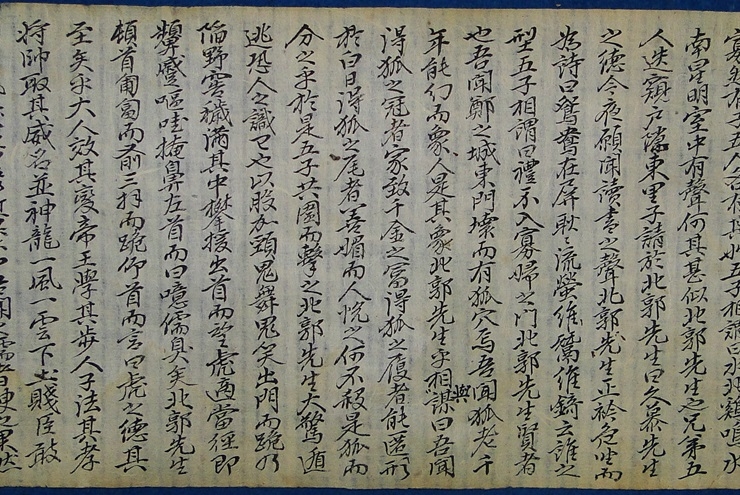 有子五人各有其姓五子相謂曰水北鷄鳴水
南星明室中有聲何其甚似北郭先生也兄弟五
人迭窺戶隙東里子請於北郭先生曰久慕先生
之德今夜願聞讀書之聲北郭先生正衿危坐而
爲詩曰鴛鴦在屛耿〻流螢維鬵維錡云誰之
型五子相謂曰禮不入寡婦之門北郭先生賢者
也吾聞鄭之城東門壞而有狐穴焉吾聞狐老千
年能幻而象人是其象北郭先生乎相與謀曰吾聞
得狐之冠者家致千金之富得狐之履者能匿形
於白日得狐之尾者善媚而人悅之何不殺是狐而
分之乎於是五子共圍而擊之北郭先生大驚遁
逃恐人之識己也以股加頭鬼舞鬼笑出門而跪乃
陷野窖穢滿其中攀援出首而望虎適當徑即
顰蹙嘔哇掩鼻左首而曰噫儒臭矣北郭先生
頓首匍匐而前三拜而跪仰首而言曰虎之德其
至矣乎大人效其變帝王學其步人子法其孝
將帥取其威名並神龍一風一雲下土賤臣敢